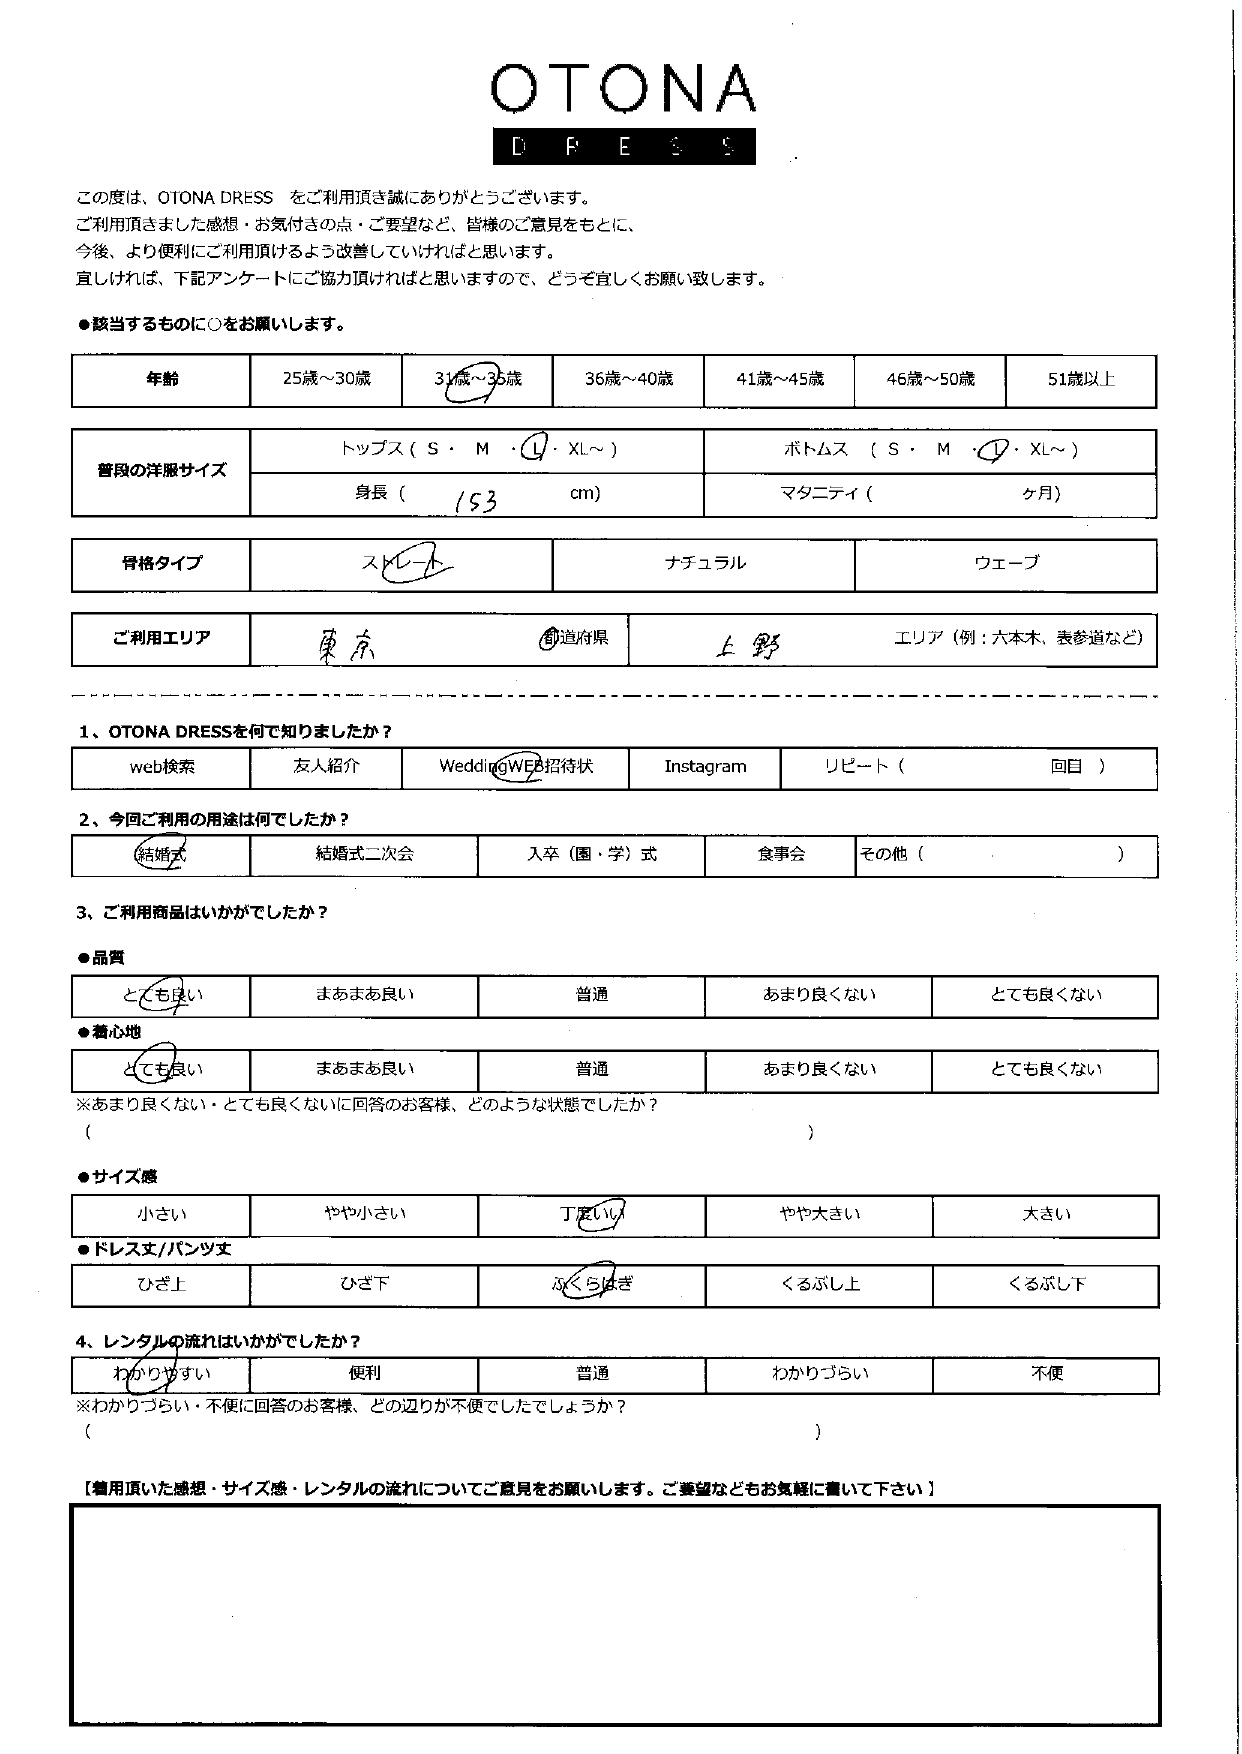 OTONA
DRESS
この度は、OTONA DRESS　をご利用頂き誠にありがとうございます。
ご利用頂きました感想・お気付きの点・ご要望など、皆様のご意見をもとに、
今後、より便利にご利用頂けるよう改善していければと思います。
宜しければ、下記アンケートにご協力頂ければと思いますので、どうぞ宜しくお願い致します。
●該当するものに○をお願いします。
年齢 25歳～30歳 31歳～35歳 36歳～40歳 41歳～45歳 46歳～50歳 51歳以上
普段の洋服サイズ トップス ( S ・ M ・ L ・ XL～ ) ボトムス ( S ・ M ・ L ・ XL～ )
身長 ( 153 cm) マタニティ ( ヶ月)
骨格タイプ ストレート ナチュラル ウェーブ
ご利用エリア 東京 都道府県 上野 エリア（例：六本木、表参道など）
1、OTONA DRESSを何で知りましたか？
web検索 友人紹介 WeddingWEB招待状 Instagram リピート（ 回目 ）
2、今回ご利用の用途は何でしたか？
結婚式 結婚式二次会 入卒（園・学）式 食事会 その他（ ）
3、ご利用商品はいかがでしたか？
●品質
とても良い まあまあ良い 普通 あまり良くない とても良くない
●着心地
とても良い まあまあ良い 普通 あまり良くない とても良くない
※あまり良くない・とても良くないに回答のお客様、どのような状態でしたか？
( )
●サイズ感
小さい やや小さい 丁度いい やや大きい 大きい
●ドレス丈/パンツ丈
ひざ上 ひざ下 ふくらはぎ くるぶし上 くるぶし下
4、レンタルの流れはいかがでしたか？
わかりやすい 便利 普通 わかりづらい 不便
※わかりづらい・不便に回答のお客様、どの辺りが不便でしたでしょうか？
( )
【着用頂いた感想・サイズ感・レンタルの流れについてご意見をお願いします。ご要望などもお気軽に書いて下さい】